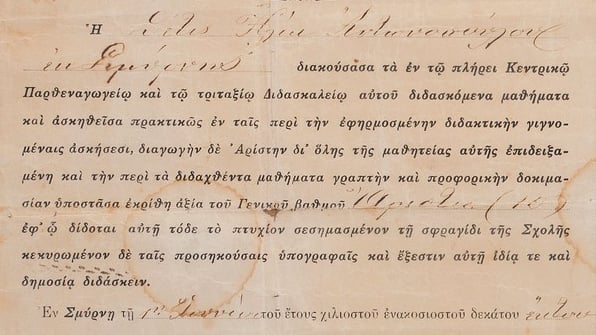 Ἡ Ἠλία Ἀντωνοπούλου
ἐκ Σμύρνης διακούσασα τὰ ἐν τῷ πλήρει Κεντρικῷ
Παρθεναγωγείῳ καὶ τῷ τριταξίῳ Διδασκαλείῳ αὐτοῦ διδασκόμενα μαθήματα
καὶ ἀσκηθεῖσα πρακτικῶς ἐν ταῖς περὶ τὴν ἐφηρμοσμένην διδακτικὴν γιγνο-
μέναις ἀσκήσεσι, διαγωγὴν δὲ Ἀρίστην δι' ὅλης τῆς μαθητείας αὐτῆς ἐπιδειξα-
μένη καὶ τὴν περὶ τὰ διδαχθέντα μαθήματα γραπτὴν καὶ προφορικὴν δοκιμα-
σίαν ὑποστᾶσα ἐκρίθη ἀξία τοῦ Γενικοῦ βαθμοῦ Ἄριστα
ἐφ' ᾧ δίδοται αὐτῇ τόδε τὸ πτυχίον σεσημασμένον τῇ σφραγίδι τῆς Σχολῆς
κεκυρωμένον δὲ ταῖς προσηκούσαις ὑπογραφαῖς καὶ ἔξεστιν αὐτῇ ἰδίᾳ τε καὶ
δημοσίᾳ διδάσκειν.
Ἐν Σμύρνῃ τῇ τοῦ ἔτους χιλιοστοῦ ἐνακοσιοστοῦ δεκάτου ἕκτου